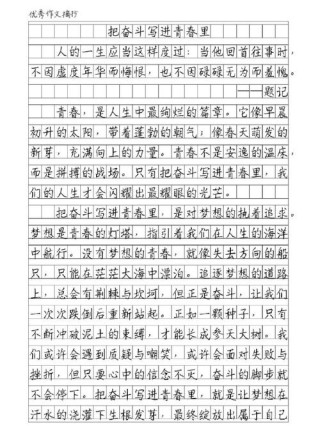 优秀作文摘抄
把奋斗写进青春里
人的一生应当这样度过:当他回首往事时,
不因虚度年华而悔恨,也不因碌碌无为而羞愧。
——题记
青春,是人生中最绚烂的篇章。它像早晨
初升的太阳,带着蓬勃的朝气;像春天萌发的
新芽,充满向上的力量。青春不是安逸的温床,
而是拼搏的战场。只有把奋斗写进青春里,我
们的人生才会闪耀出最耀眼的光芒。
把奋斗写进青春里,是对梦想的执着追求。
梦想是青春的灯塔,指引着我们在人生的海洋
中航行。没有梦想的青春,就像失去方向的船
只,只能在茫茫大海中漂泊。追逐梦想的道路
上,总会有荆棘与坎坷,但正是奋斗,让我们
一次次跌倒后重新站起。正如一颗种子,只有
不断冲破泥土的束缚,才能长成参天大树。我
们或许会遇到质疑与嘲笑,或许会面对失败与
挫折,但只要心中的信念不灭,奋斗的脚步就
不会停下。把奋斗写进青春里,就是让梦想在
汗水的浇灌下生根发芽,最终绽放出属于自己